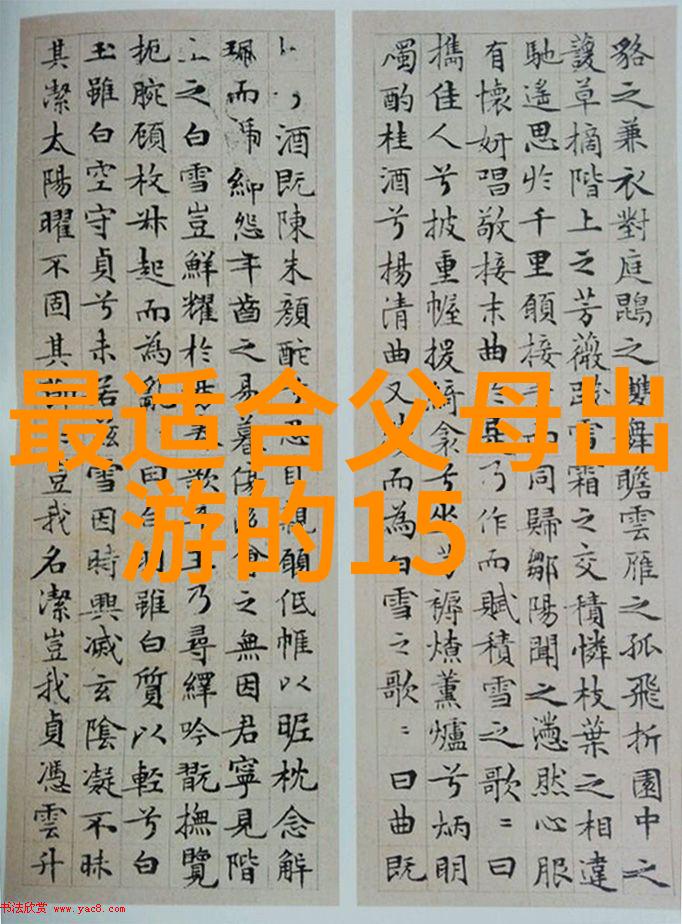 最适合父母出
游的15
貉之兼衣對庭鵾之雙舞瞻雲雁之孤飛折園中之
草摘階上之芳薇雪霜之交積憐枝葉之相違
馳遙思於千里願接手而同歸鄒陽聞之懣然心服
有懷妍唱敬接末曲於是乃作而賦積雪之歌=曰
攜佳人兮披重幄援綺衾兮坐芳褥燎薰爐兮炳明
燭酌桂酒兮揚清曲又續而為白雪之歌=曰曲既
酒既陳朱顏酡兮思自親願低帷以昵枕念解
珮而褫紳怨年齒之易暮傷後會之無因君寧見階
上之白雪豈鮮耀於陽春歌卒王乃尋繹吟翫撫覽
扼腕顧枚叔起而為亂=曰白羽雖白質以輕兮白
玉雖白空守貞兮未若茲雪因時興滅玄陰凝不昧
其潔太陽曜不固其節=豈我名潔豈我貞憑雲升
书法欣赏 www.yac8.com